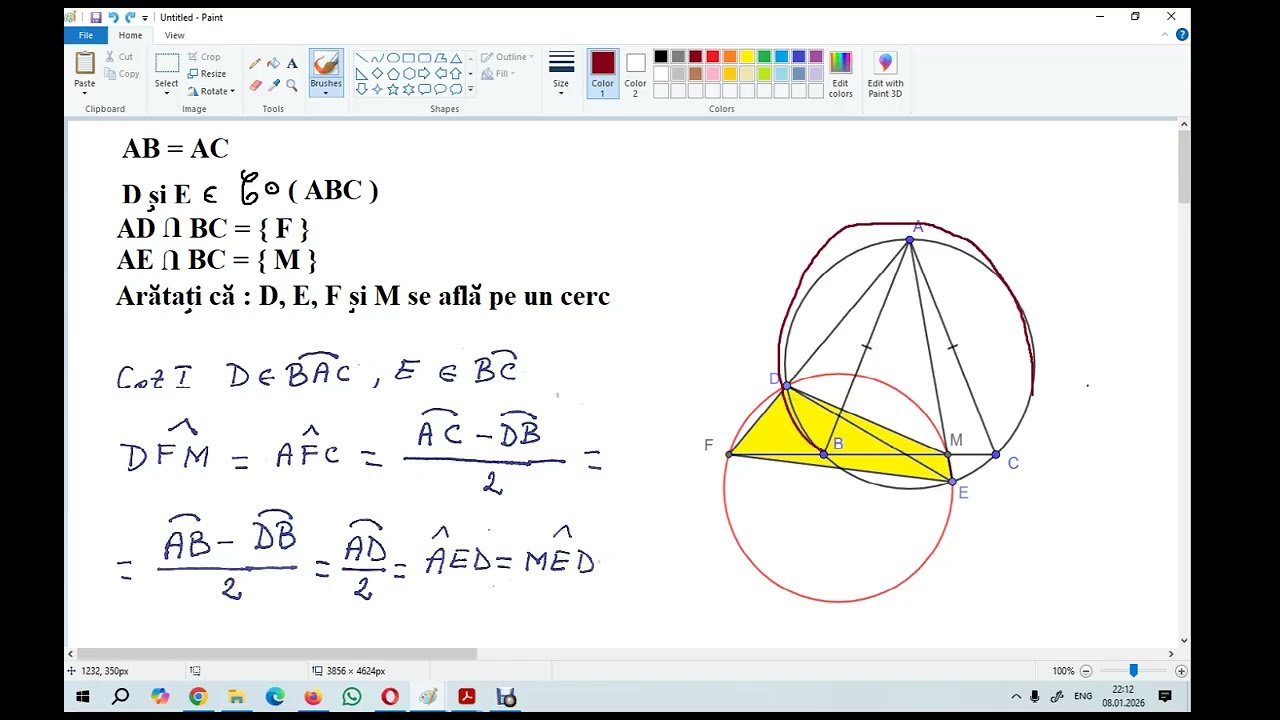 Untitled - Paint
File Home View
Paste Cut Copy Clipboard
Select Crop Resize Rotate Image
Tools
Brushes
Outline Fill Shapes
Size
Color 1 Color 2 Edit colors Colors
Edit with Paint 3D
AB = AC
D și E ∈ 𝒞⊙ ( ABC )
AD ∩ BC = { F }
AE ∩ BC = { M }
Arătați că : D, E, F și M se află pe un cerc
Caz I D ∈ B͡AC , E ∈ B͡C
DF̂M = AF̂C = (A͡C − D͡B) / 2 =
= (A͡B − D͡B) / 2 = A͡D / 2 = ÂED = MÊD
A
D
F B M C
E
1232, 350px 3856 × 4624px 100%
ENG 22:12
08.01.2026